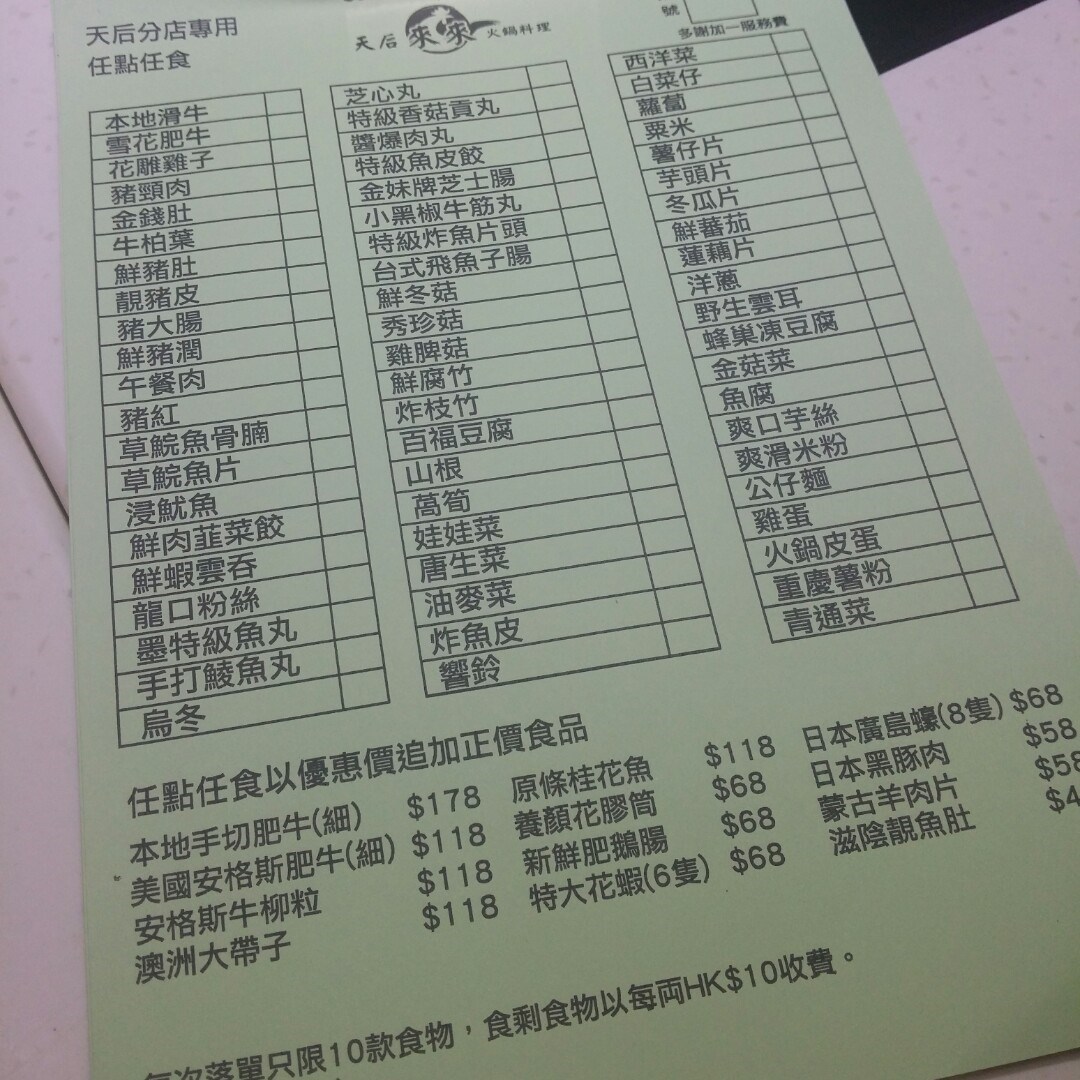 天后分店專用
任點任食
天后 來來 火鍋料理
號
多謝加一服務費
本地滑牛
雪花肥牛
花雕雞子
豬頸肉
金錢肚
牛柏葉
鮮豬肚
靚豬皮
豬大腸
鮮豬潤
午餐肉
豬紅
草鯇魚骨腩
草鯇魚片
浸魷魚
鮮肉韮菜餃
鮮蝦雲吞
龍口粉絲
墨特級魚丸
手打鯪魚丸
烏冬
芝心丸
特級香菇貢丸
醬爆肉丸
特級魚皮餃
金妹牌芝士腸
小黑椒牛筋丸
特級炸魚片頭
台式飛魚子腸
鮮冬菇
秀珍菇
雞脾菇
鮮腐竹
炸枝竹
百福豆腐
山根
萵筍
娃娃菜
唐生菜
油麥菜
炸魚皮
響鈴
西洋菜
白菜仔
蘿蔔
粟米
薯仔片
芋頭片
冬瓜片
鮮蕃茄
蓮藕片
洋蔥
野生雲耳
蜂巢凍豆腐
金菇菜
魚腐
爽口芋絲
爽滑米粉
公仔麵
雞蛋
火鍋皮蛋
重慶薯粉
青通菜
任點任食以優惠價追加正價食品
本地手切肥牛(細) $178
美國安格斯肥牛(細) $118
安格斯牛柳粒 $118
澳洲大帶子 $118
原條桂花魚 $118
養顏花膠筒 $68
新鮮肥鵝腸 $68
特大花蝦(6隻) $68
日本廣島蠔(8隻) $68
日本黑豚肉 $58
蒙古羊肉片 $58
滋陰靚魚肚 $4
每次落單只限10款食物，食剩食物以每両HK$10收費。